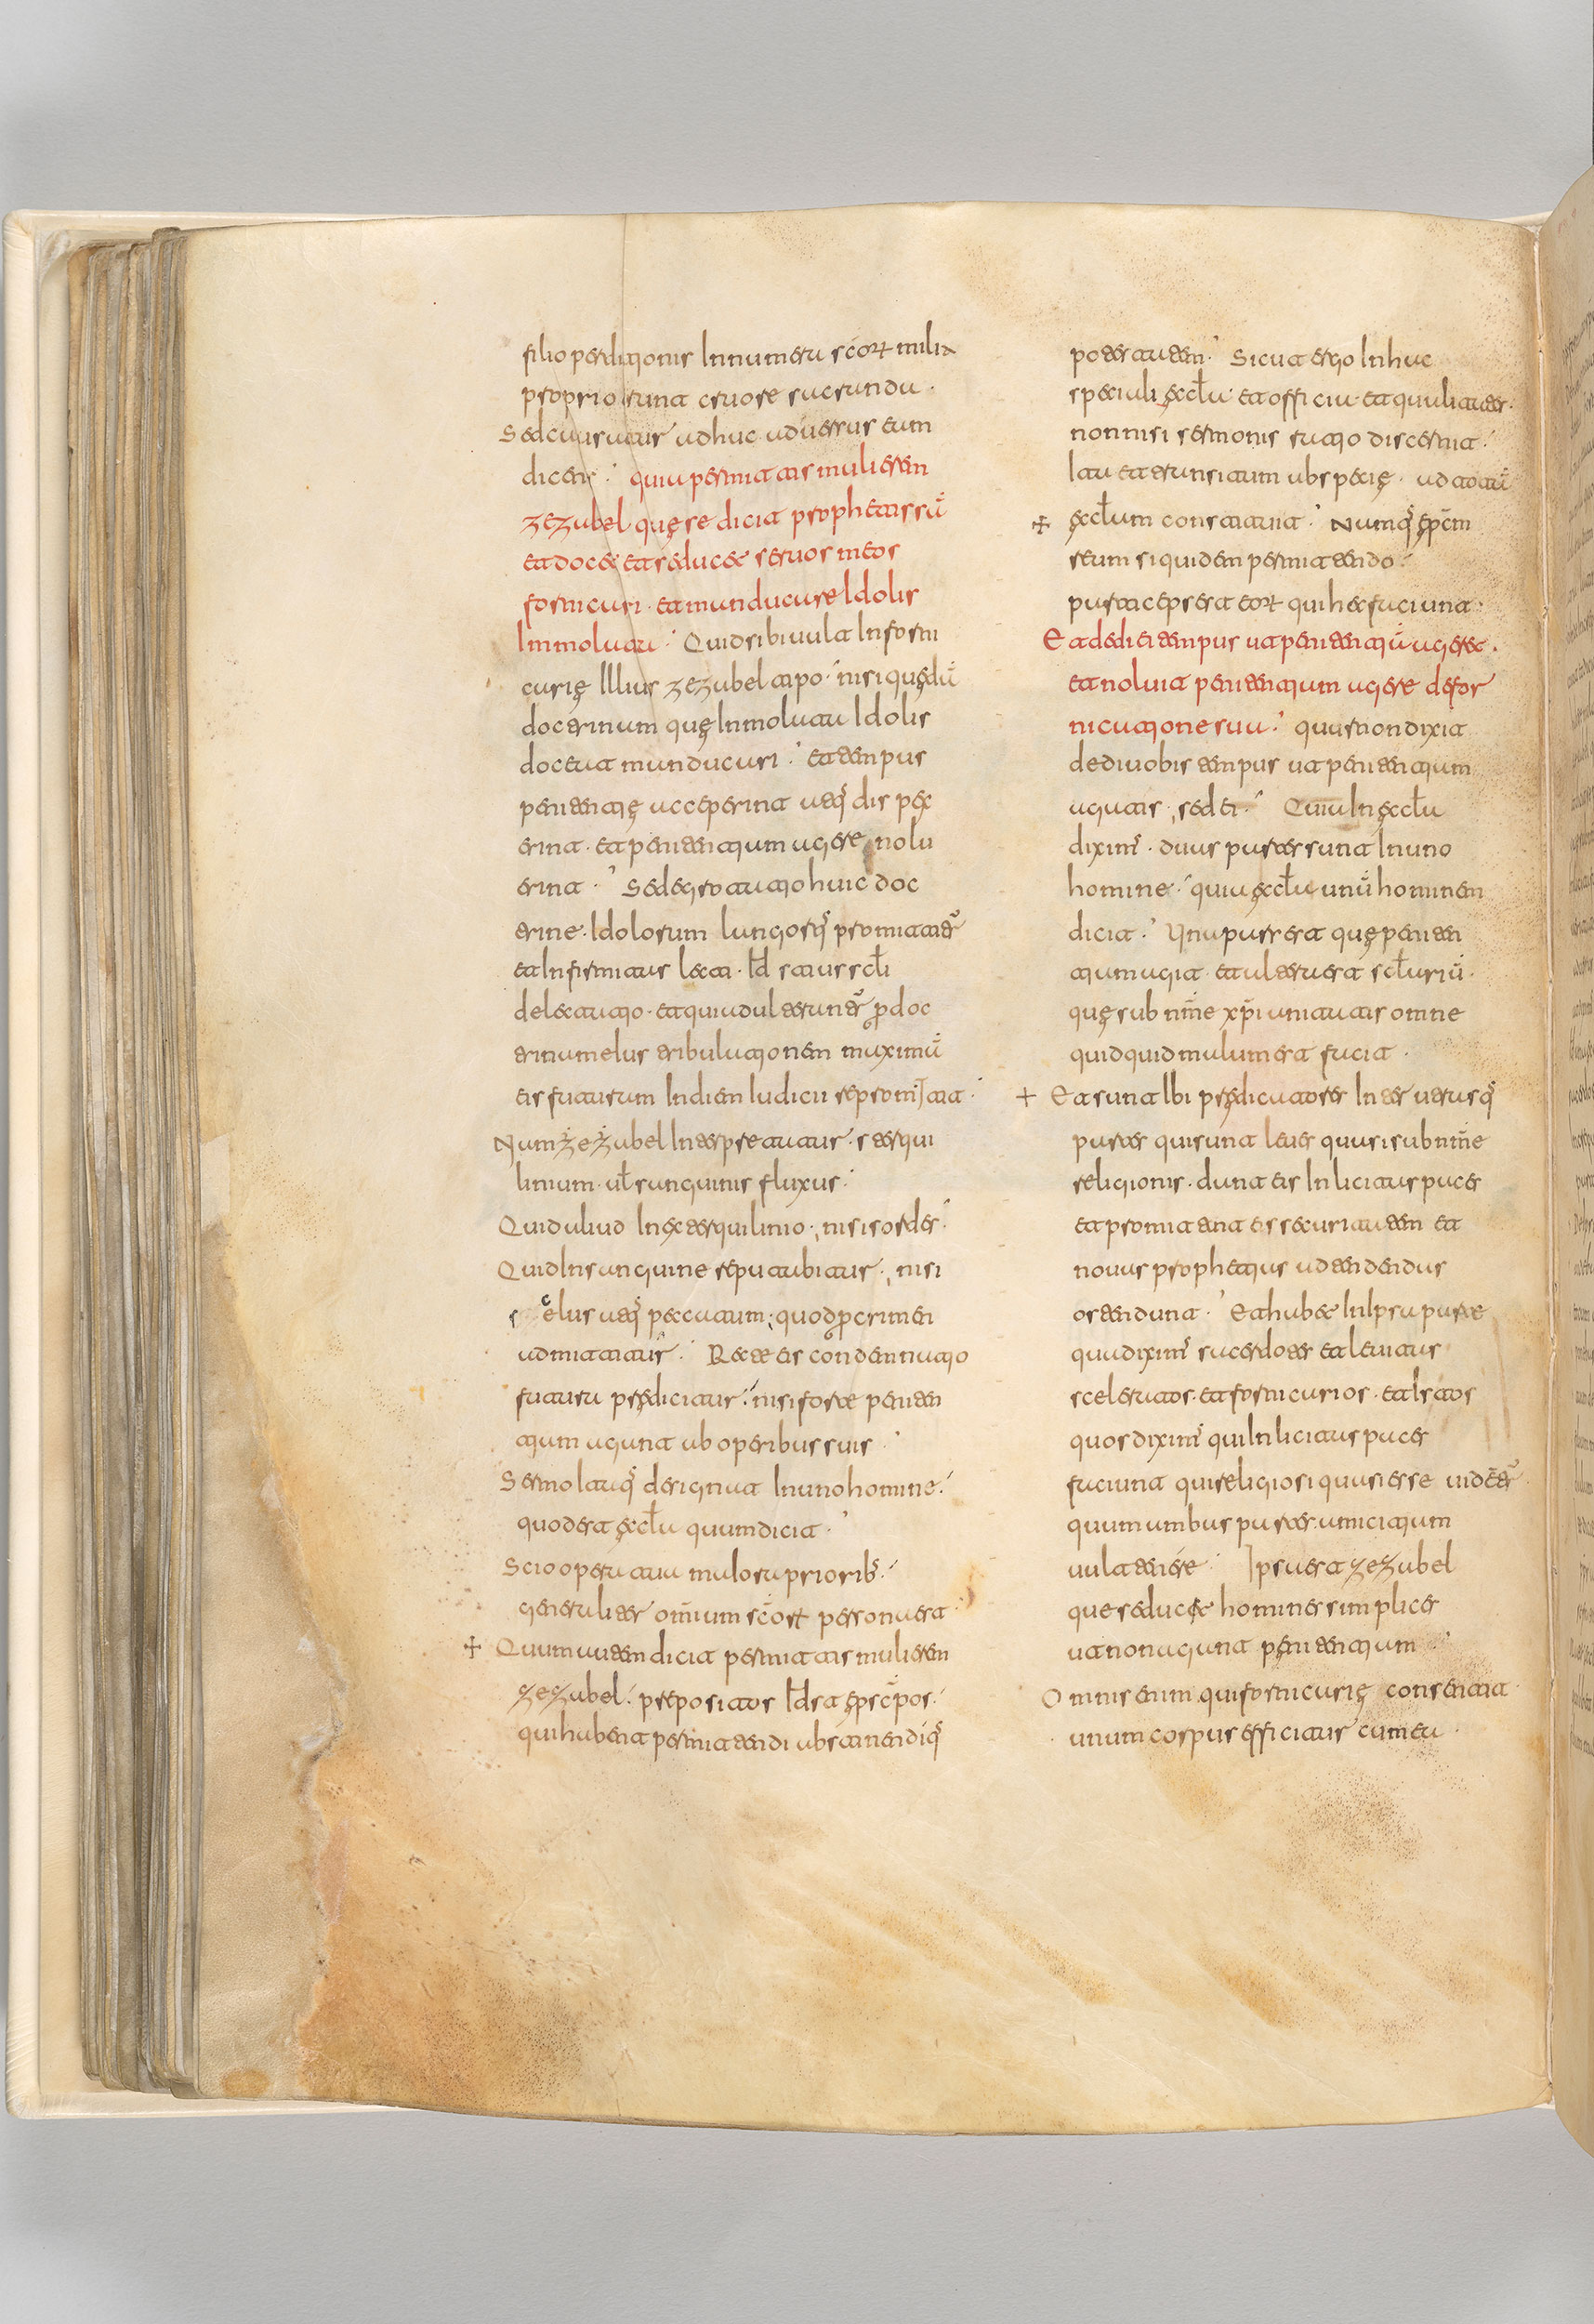 filio perditionis Innumera scōꝝ milia
proprio sunt cruore sacranda .
Sed causatur adhuc aduersus eum
dicens . quia permittis mulierem
zezabel quę se dicit prophetissā
et docet et seducet seruos meos
fornicari . et manducare Idolis
Immolata . Quid sibi uult In forni
carię Illius zezabel tipo . nisi quędā
doctrinam quę Inmolata Idolis
doceat manducari . et tempus
penitentię acceperint atq̄ dispex
erint . et penitentiam agere nolu
erint . Sed egrotatio huic doc
trine . Idolorum langorq̄ promittit̄r
et Infirmitas lecti . Id scli
delectatio . et qui adulterant̄r ꝑ doc
trinam eius tribulationem maximā
eis futuram In diem Iudicii repromittit .
Num zezabel Interpretatur . sterqui
linium . uł sanguinis fluxus .
Quid aliud In exsterquilinio . nisi sordes .
Quid In sanguine reputabitur . nisi
scelus atq̄ peccatum ; quod ꝑ crimen
admittitur . Recte eis condemnatio
futura prędicitur . nisi forte peniten
tiam agant ab operibus suis .
Sermo Itaq̄ designat In uno homine .
quod est ęccłā quum dicit .
Scio opera tua mala priorib̄ .
generaliter om̄ium scōꝝ persona est .
✢ Quum autem dicit permittis mulierem
zezabel . prepositos Idst ępscpos .
qui habent permittendi abstinendiq̄
potestatem . Sicut ergo In hac
speciali ęccła et officia et qualitates .
non nisi sermonis ratio discernit .
Ita et transitum ab specię . ad totā
✢ ęccłam constituit . Numq̄ ęp̄cm
reum si quidem permittendo .
particeps est eoꝝ qui hec faciunt .
Et dedi ei tempus ut penitentiā ageret .
et noluit penitentiam agere de for
nicatione sua . quare non dixit
dedi uobis tempus ut penitentiam
agatis , sed ei . Quia In ęccła
dixim̄ . duas partes sunt In uno
homine . quia ęccła unū hominem
dicit . Una pars est quę peniten
tiam agit . et altera est scłariū .
quę sub nm̄e xp̄i unitatis omne
quidquid malum est facit .
+ Et sunt Ibi prędicatores In ter utrasq̄
partes qui sunt leues quasi sub nm̄e
religionis . dant eis Inlicitas paces
et promittent eis securitatem et
nouas prophetias adtendendas
ostendunt . Et habet In Ipsa parte
qua dixim̄ sacerdotes et leuitas
sceleratos . et fornicarios . et Istos
quos dixim̄ qui Inlicitas paces
faciunt qui religiosi quasi esse uident̄r
quum ambas partes . amicitiam
uult tenere . Ipsa est zezabel
que seducęt homines simplices
ut non agant pęnitentiam .
Omnis enim qui fornicarię consentit .
unum corpus efficitur cum ea .